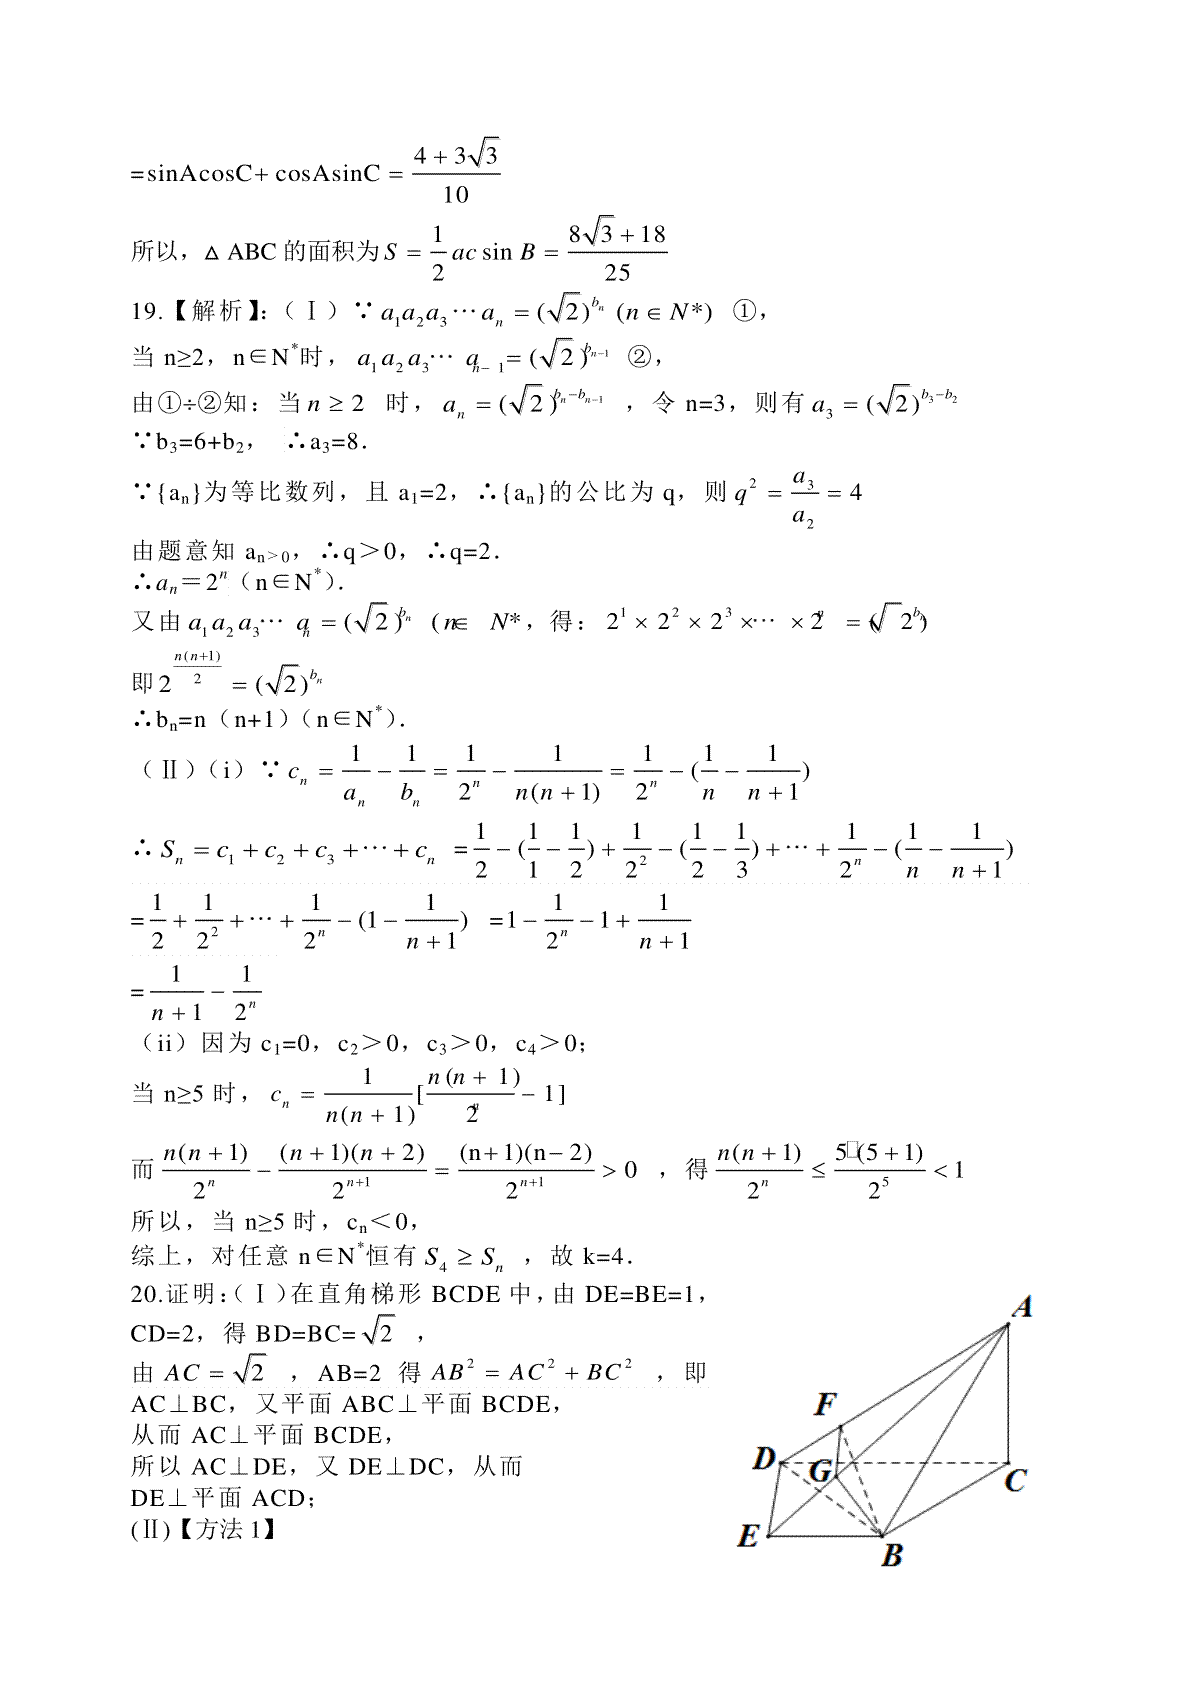 =sinAcosC+ cosAsinC = (4+3√3)/10
所以，△ABC 的面积为 S = 1/2 ac sin B = (8√3+18)/25
19.【解析】：（Ⅰ）∵ a₁a₂a₃⋯aₙ = (√2)^{bₙ} (n∈N*) ①，
当 n≥2，n∈N*时，a₁a₂a₃⋯aₙ₋₁ = (√2)^{bₙ₋₁} ②，
由①÷②知：当 n ≥ 2 时，aₙ = (√2)^{bₙ−bₙ₋₁} ，令 n=3，则有 a₃ = (√2)^{b₃−b₂}
∵b₃=6+b₂， ∴a₃=8．
∵{aₙ}为等比数列，且 a₁=2，∴{aₙ}的公比为 q，则 q² = a₃/a₂ = 4
由题意知 aₙ>0，∴q＞0，∴q=2．
∴aₙ＝2ⁿ（n∈N*）．
又由 a₁a₂a₃⋯aₙ = (√2)^{bₙ} (n∈ N*，得：2¹×2²×2³×⋯×2ⁿ = (√2^{bₙ})
即 2^{n(n+1)/2} = (√2)^{bₙ}
∴bₙ=n（n+1）（n∈N*）．
（Ⅱ）（i）∵ cₙ = 1/aₙ − 1/bₙ = 1/2ⁿ − 1/(n(n+1)) = 1/2ⁿ − (1/n − 1/(n+1))
∴ Sₙ = c₁+c₂+c₃+⋯+cₙ = 1/2 − (1/1 − 1/2) + 1/2² − (1/2 − 1/3) + ⋯ + 1/2ⁿ − (1/n − 1/(n+1))
= 1/2 + 1/2² + ⋯ + 1/2ⁿ − (1 − 1/(n+1)) = 1 − 1/2ⁿ − 1 + 1/(n+1)
= 1/(n+1) − 1/2ⁿ
（ii）因为 c₁=0，c₂＞0，c₃＞0，c₄＞0；
当 n≥5 时，cₙ = 1/(n(n+1)) [n(n+1)/2ⁿ − 1]
而 n(n+1)/2ⁿ − (n+1)(n+2)/2ⁿ⁺¹ = (n+1)(n−2)/2ⁿ⁺¹ > 0 ，得 n(n+1)/2ⁿ ≤ 5□(5+1)/2⁵ < 1
所以，当 n≥5 时，cₙ＜0，
综上，对任意 n∈N*恒有 S₄ ≥ Sₙ ，故 k=4．
20.证明：（Ⅰ）在直角梯形 BCDE 中，由 DE=BE=1，
CD=2，得 BD=BC=√2 ，
由 AC = √2 ，AB=2 得 AB² = AC² + BC² ，即
AC⊥BC，又平面 ABC⊥平面 BCDE，
从而 AC⊥平面 BCDE，
所以 AC⊥DE，又 DE⊥DC，从而
DE⊥平面 ACD；
(Ⅱ)【方法 1】
A
F
D
G
C
E
B